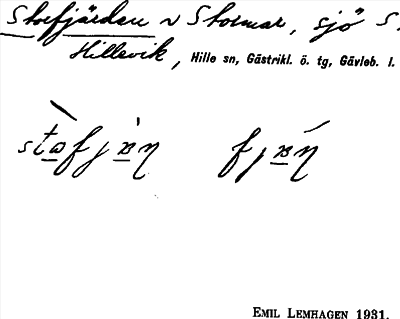 Storfjärden v Stormar, sjö S.
Hillevik, Hille sn, Gästrikl. ö. tg, Gävleb. l.
EMIL LEMHAGEN 1931.